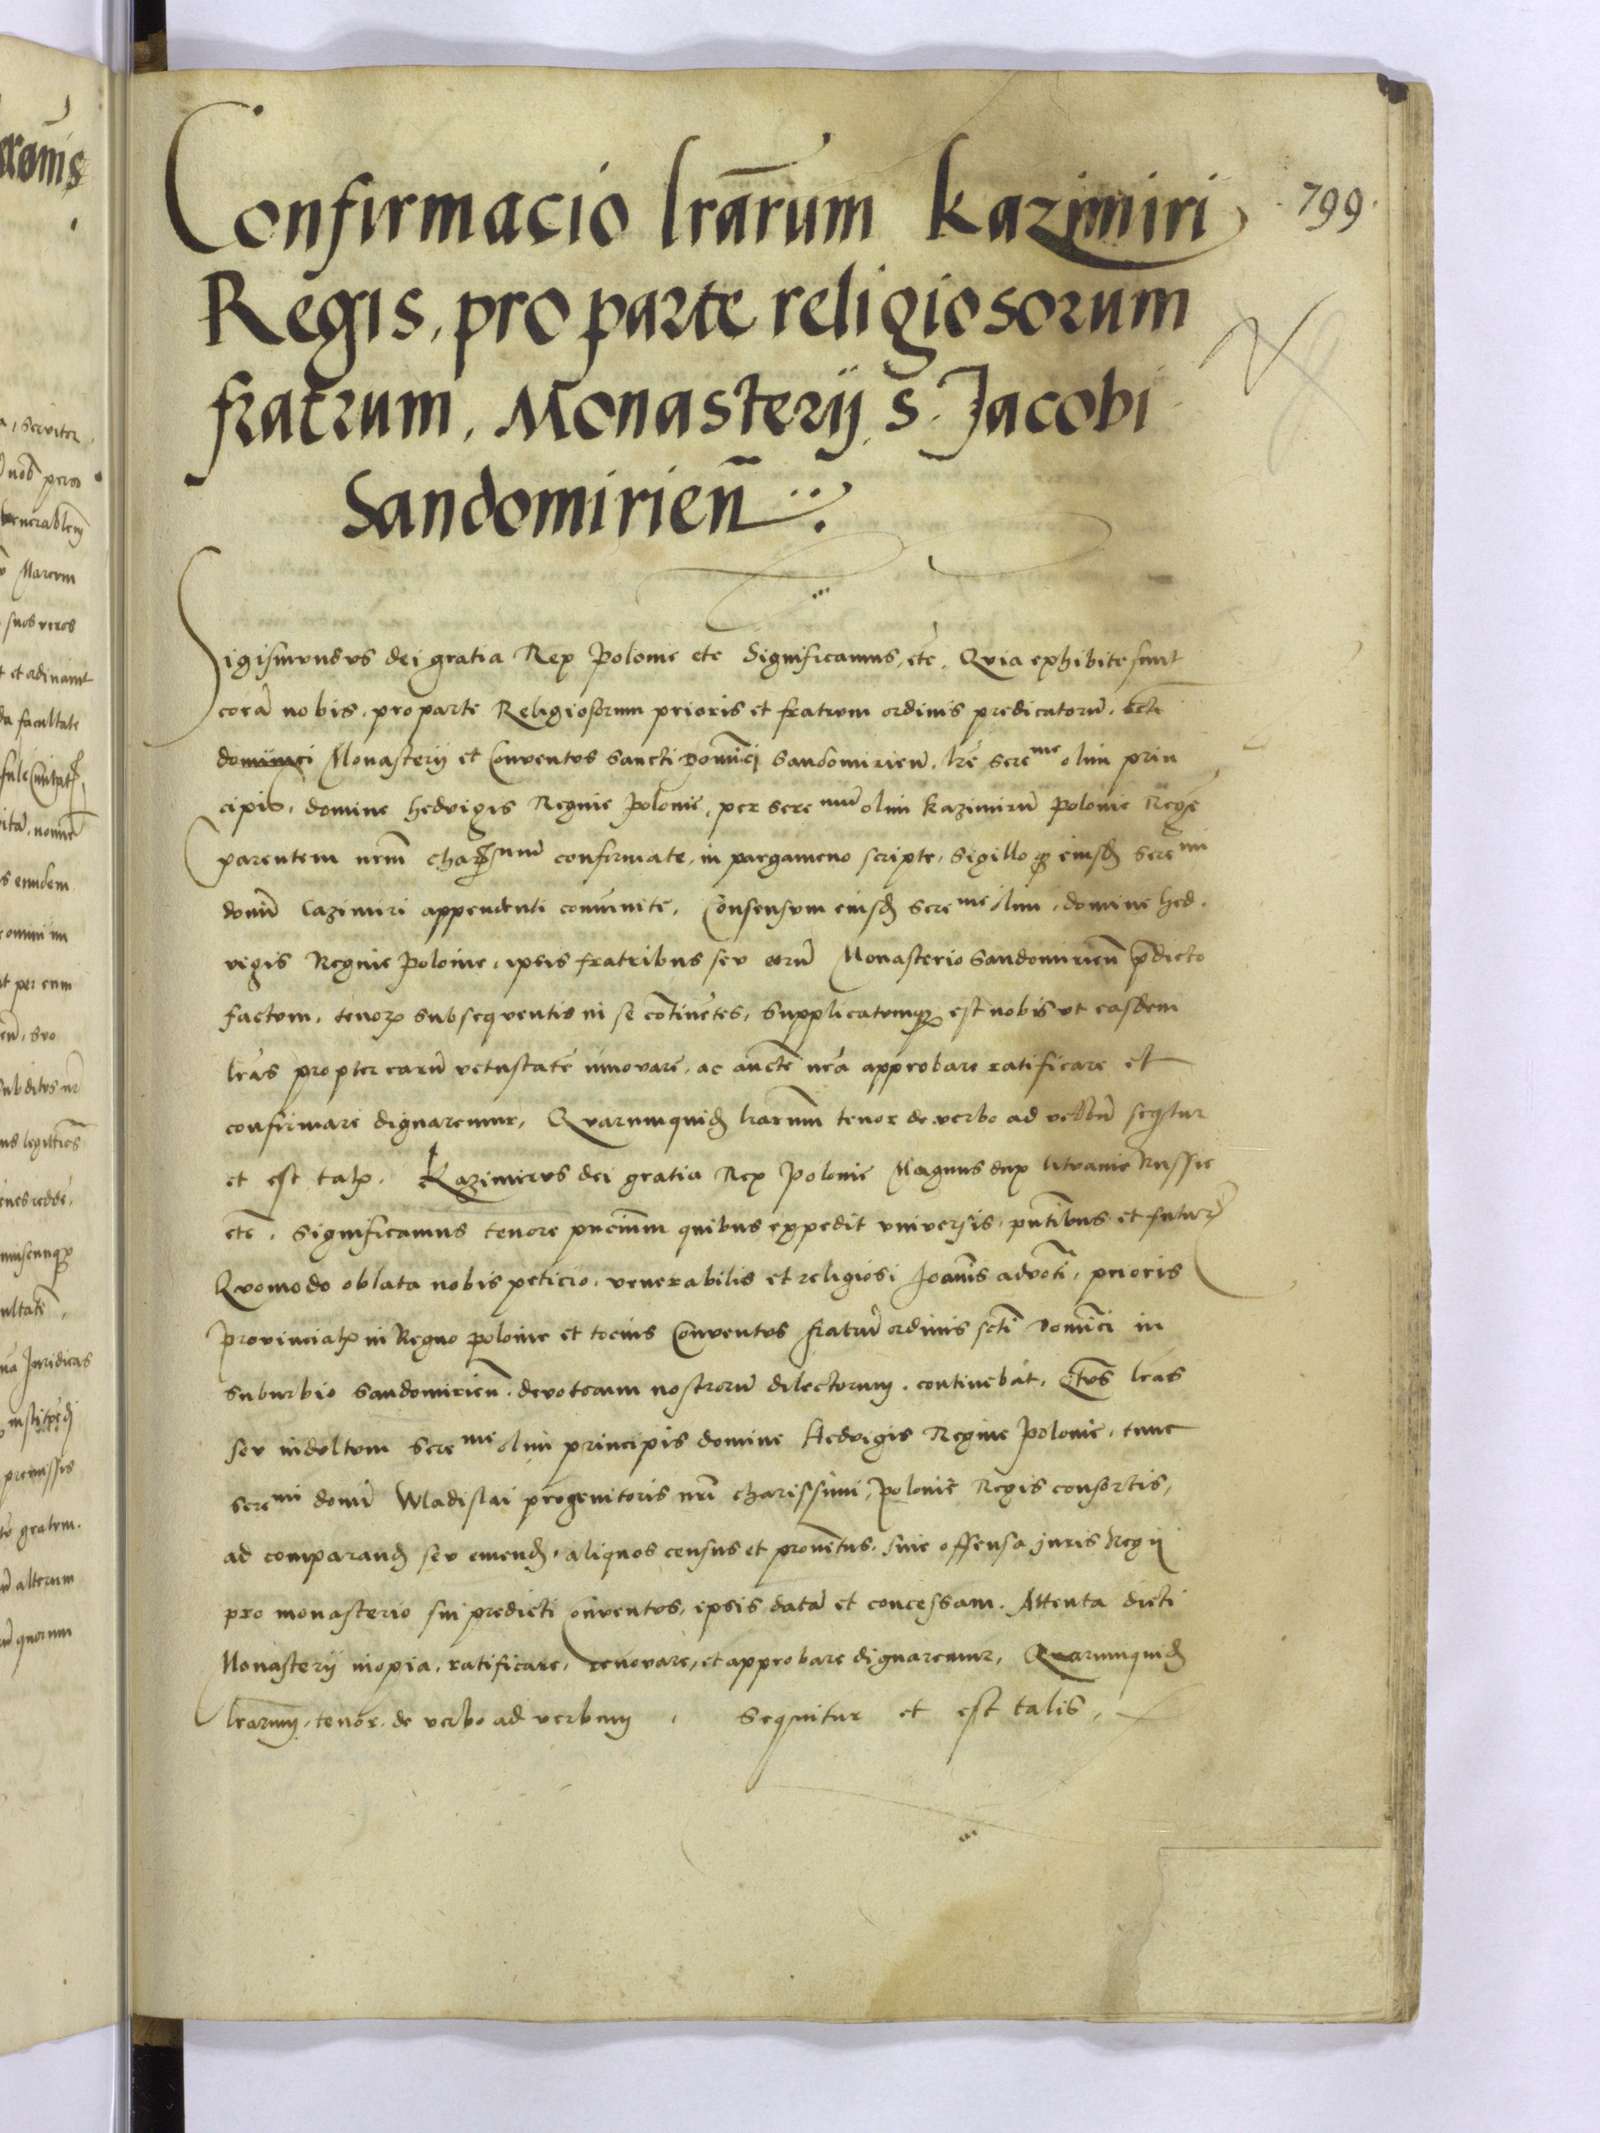 799.
Confirmacio lrarum Kazimiri
Regis, pro parte religiosorum
fratrum, Monasterij S. Jacobi
Sandomirien̄
Sigismundus dei gratia Rex Polonie etc Significamus, etc, Quia exhibite sunt
corā nobis, pro parte Religiosorum prioris et fratrum ordinis predicatorū,
dominici Monasterij et Conventus sancti Dominici Sandomirien̄, lrē sereme olim prin
cipis, domine Hedvigis Regine Polonie, per serenum olim Kazimirū Polonie Regē
parentem nrm̄ confirmate, in pargameno scripte, sigillo eiusd sereni
domī Cazimiri appendenti comunite, Consensum eiusd sereme olim, domine Hed,
vigis Regine Polonie, ipsis fratribus seu eorū Monasterio Sandomirien̄ p̄dicto
factum, tenoris subsequentis in se cōtinētes, Supplicatumq est nobis ut easdem
lrās propter earū vetustatē innovare, ac aucte nrā approbare ratificare et
confirmare dignaremur, Quarumquid lrarum tenor de verbo ad verbū seqtur
et est talis. Kazimirus dei gratia Rex Polonie Magnus dux Litvanie Russie
etc. Significamus tenore pn̄cium quibus expedit universis, pn̄tibus et futur
Quomodo oblata nobis peticio, venerabilis et religiosi Joannis advoti, prioris
provincialis in Regno Polonie et tocius Conventus fratrū ordinis scti Dominici in
suburbio Sandomirien̄, devotorum nostrorū dilectorum, continebat, lras
seu indultum sereme olim principis domine Hedvigis Regine Polonie, tunc
sereni domī Wladislai progenitoris nri charissimi, Polonie Regis consortis,
ad comparand seu emend, aliquos census et proventus, sine offensa juris Regij
pro monasterio sui predicti Conventus, ipsis datā et concessam. Attenta dicti
Monasterij inopia, ratificare, renovare, et approbare dignaremur, Quarumquid
lrarum, tenor, de verbo ad verbum, sequitur et est talis,